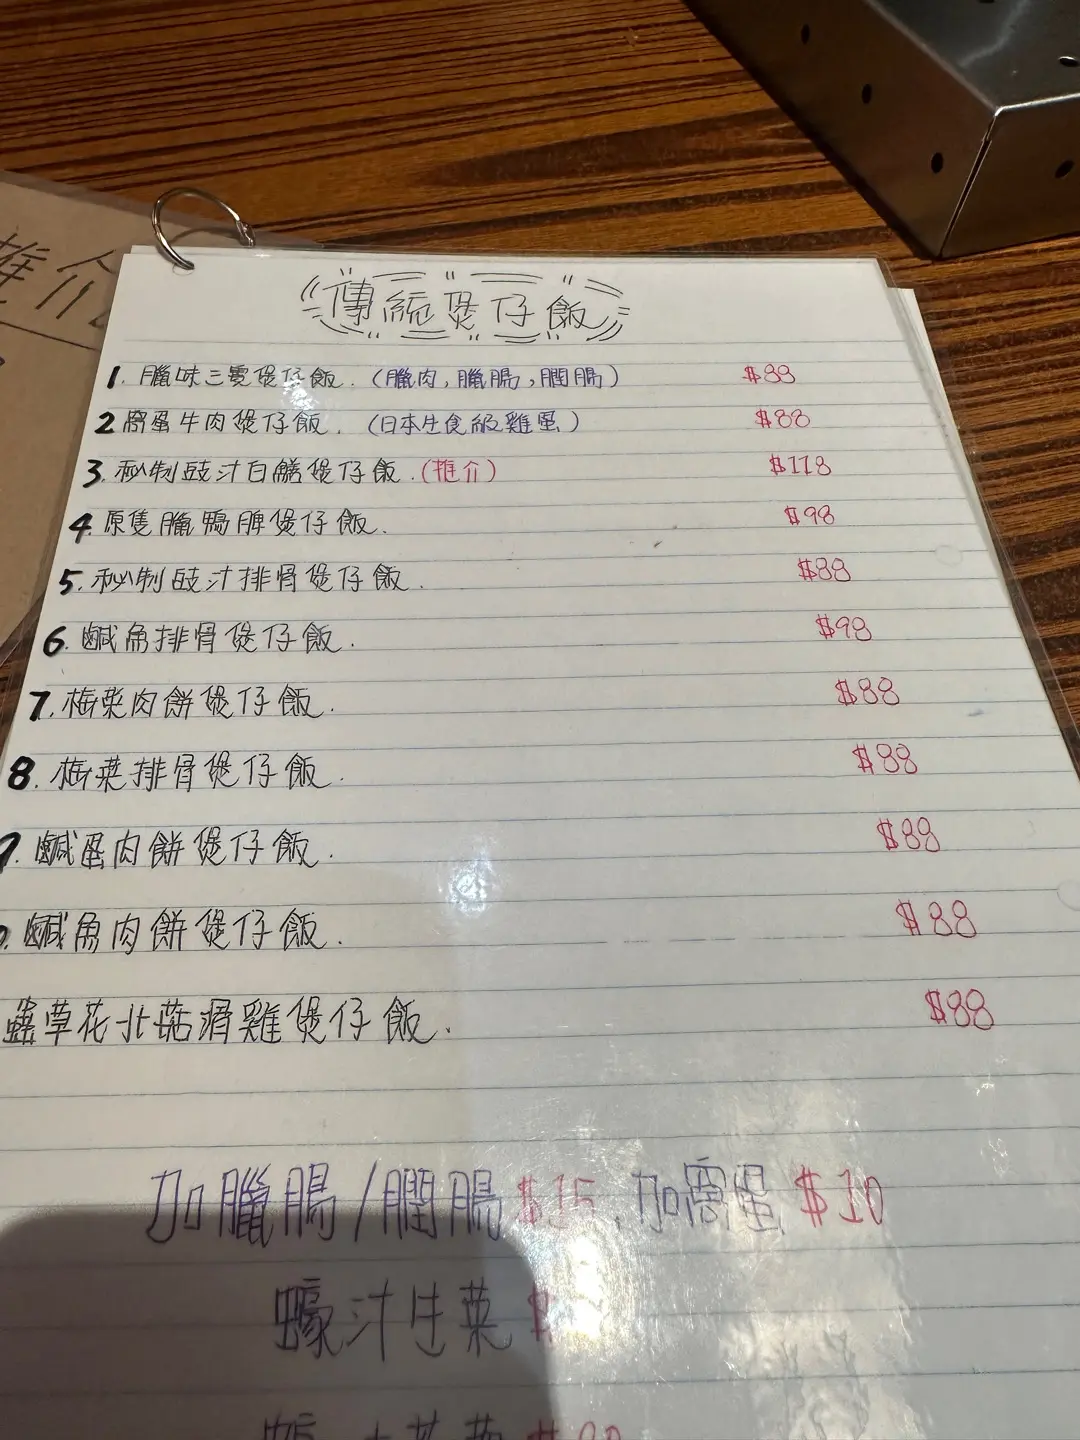 推介
傳統煲仔飯
1. 臘味三寶煲仔飯. (臘肉,臘腸,膶腸) $88
2 窩蛋牛肉煲仔飯. (日本生食級雞蛋) $88
3. 秘制豉汁白鱔煲仔飯.(推介) $118
4. 原隻臘鴨脾煲仔飯. $98
5. 秘制豉汁排骨煲仔飯. $88
6. 鹹魚排骨煲仔飯. $98
7. 梅菜肉餅煲仔飯. $88
8. 梅菜排骨煲仔飯. $88
9. 鹹蛋肉餅煲仔飯. $88
鹹魚肉餅煲仔飯. $88
蟲草花北菇滑雞煲仔飯. $88
加臘腸/膶腸 $15, 加窩蛋 $10
蠔汁生菜 $